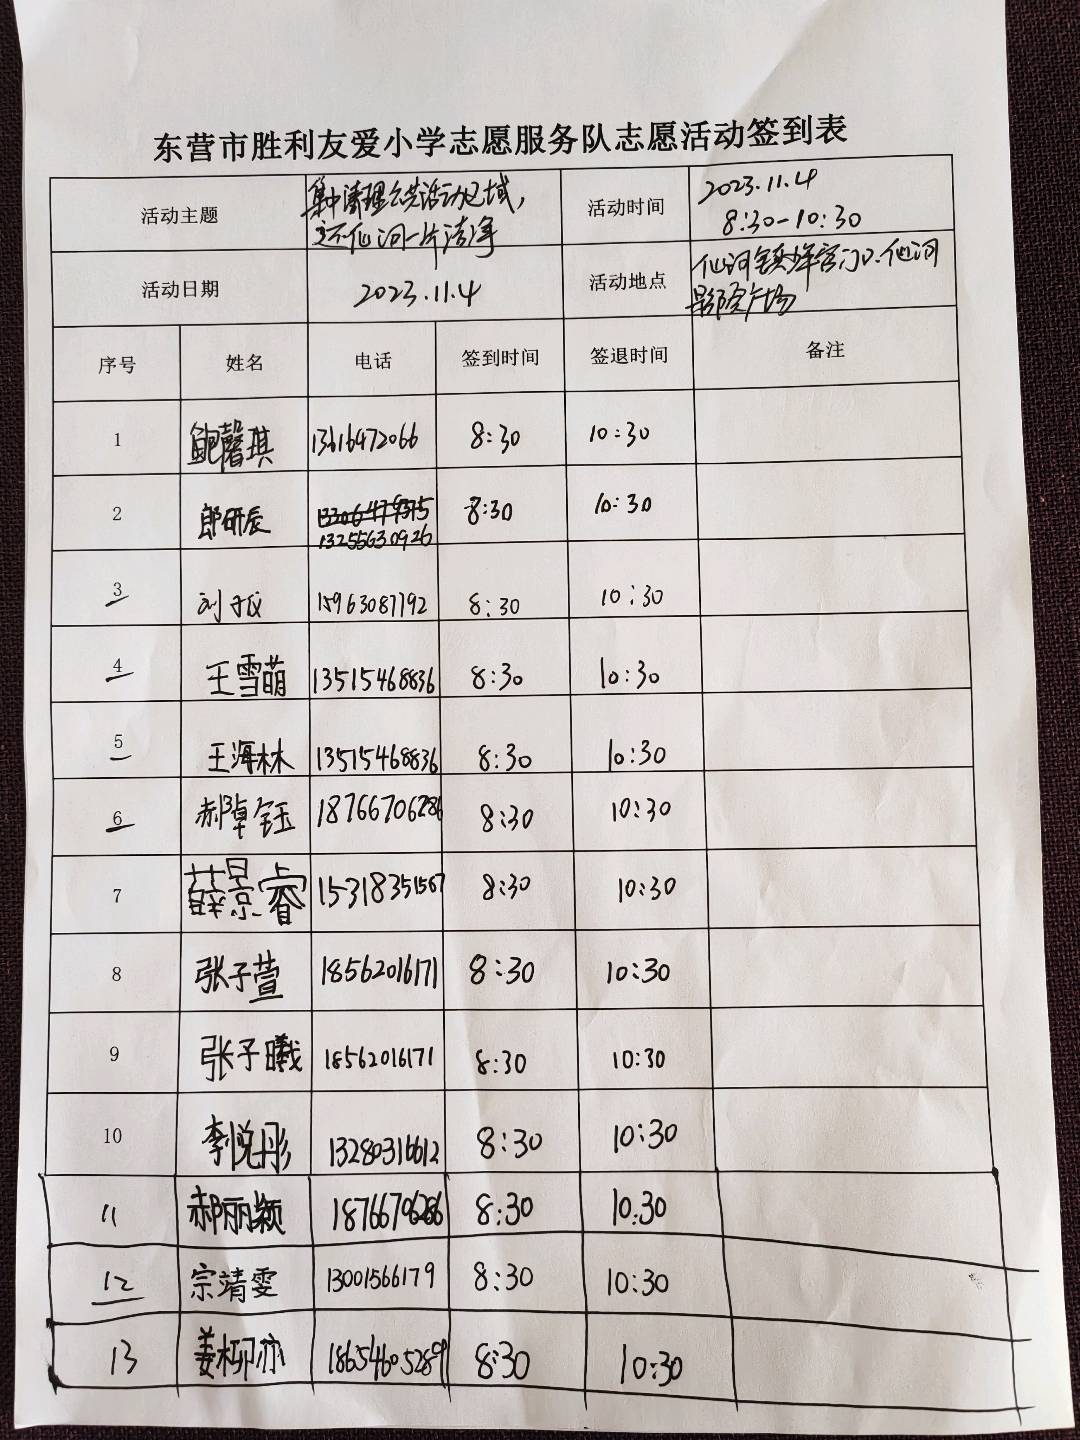 东营市胜利友爱小学志愿服务队志愿活动签到表
活动主题 集中清理公共活动区域，
还仙河一片洁净
活动时间 2023.11.4
8:30-10:30
活动日期 2023.11.4
活动地点 仙河镇少年宫门口.仙河
影院广场
序号 姓名 电话 签到时间 签退时间 备注
1 鲍馨琪 13616472066 8:30 10:30
2 郎研辰 13255630926 8:30 10:30
3 刘子仪 15963087792 8:30 10:30
4 王雪萌 13515468836 8:30 10:30
5 王海林 13515468836 8:30 10:30
6 郝卓钰 18766706286 8:30 10:30
7 薛景睿 15318351567 8:30 10:30
8 张子萱 18562016171 8:30 10:30
9 张子曦 18562016171 8:30 10:30
10 李悦彤 13280316612 8:30 10:30
11 郝丽颖 18766706286 8:30 10:30
12 宗靖雯 13001566179 8:30 10:30
13 姜柳亦 18654605289 8:30 10:30